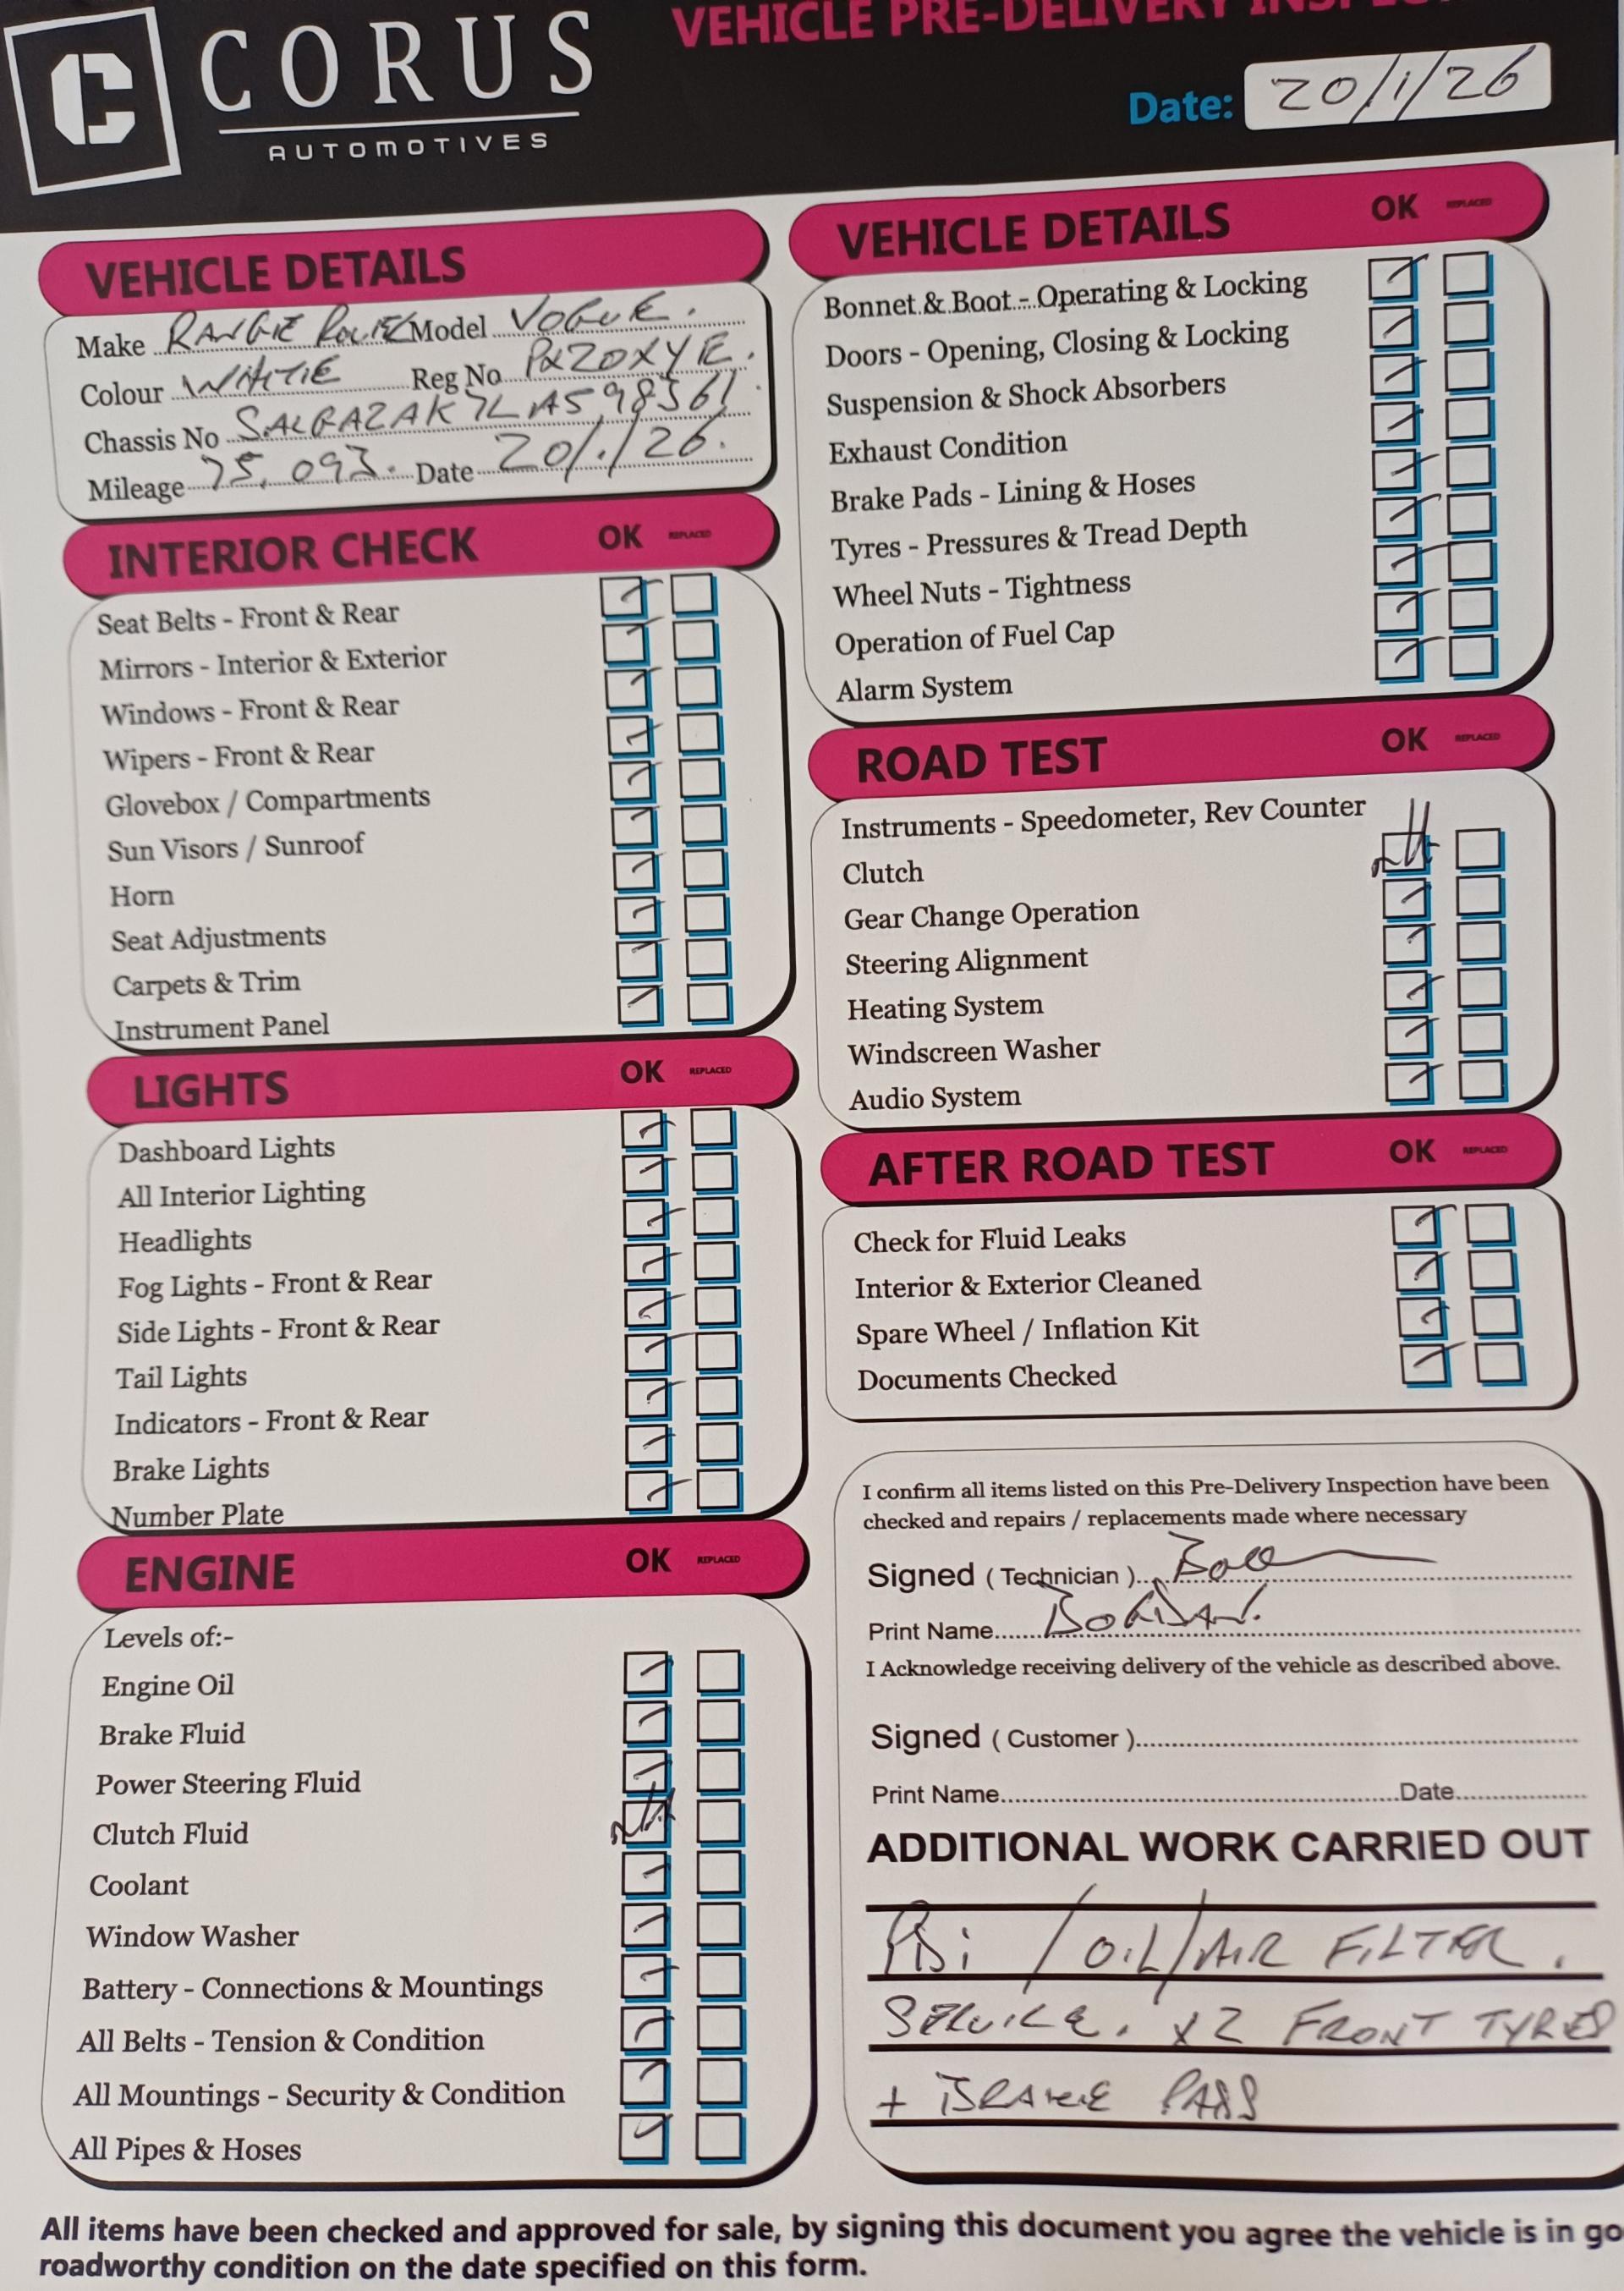 CORUS
AUTOMOTIVES
VEHICLE PRE-DELIVERY INSPECT
Date: 20/1/26
VEHICLE DETAILS
Make RANGE ROVER Model VOGUE.
Colour WHITE Reg No PX20XYE.
Chassis No
Mileage 75,093. Date 20/1/26.
INTERIOR CHECK OK REPLACED
Seat Belts - Front & Rear
Mirrors - Interior & Exterior
Windows - Front & Rear
Wipers - Front & Rear
Glovebox / Compartments
Sun Visors / Sunroof
Horn
Seat Adjustments
Carpets & Trim
Instrument Panel
LIGHTS OK REPLACED
Dashboard Lights
All Interior Lighting
Headlights
Fog Lights - Front & Rear
Side Lights - Front & Rear
Tail Lights
Indicators - Front & Rear
Brake Lights
Number Plate
ENGINE OK REPLACED
Levels of:-
Engine Oil
Brake Fluid
Power Steering Fluid
Clutch Fluid N/A
Coolant
Window Washer
Battery - Connections & Mountings
All Belts - Tension & Condition
All Mountings - Security & Condition
All Pipes & Hoses
VEHICLE DETAILS OK REPLACED
Bonnet & Boot - Operating & Locking
Doors - Opening, Closing & Locking
Suspension & Shock Absorbers
Exhaust Condition
Brake Pads - Lining & Hoses
Tyres - Pressures & Tread Depth
Wheel Nuts - Tightness
Operation of Fuel Cap
Alarm System
ROAD TEST OK REPLACED
Instruments - Speedometer, Rev Counter
Clutch N/A
Gear Change Operation
Steering Alignment
Heating System
Windscreen Washer
Audio System
AFTER ROAD TEST OK REPLACED
Check for Fluid Leaks
Interior & Exterior Cleaned
Spare Wheel / Inflation Kit
Documents Checked
I confirm all items listed on this Pre-Delivery Inspection have been
checked and repairs / replacements made where necessary
Signed ( Technician )
Print Name BOGDAN.
I Acknowledge receiving delivery of the vehicle as described above.
Signed ( Customer )
Print Name Date
ADDITIONAL WORK CARRIED OUT
PDi / OIL/AIR FILTER.
SERVICE. X2 FRONT TYRES
+ BRAKE PADS
All items have been checked and approved for sale, by signing this document you agree the vehicle is in go
roadworthy condition on the date specified on this form.